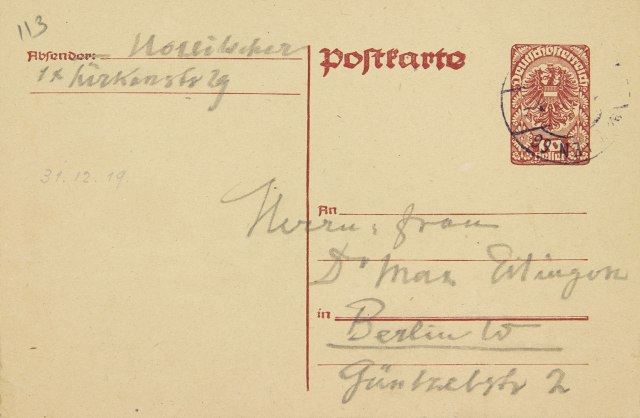 113
Absender: Hollitscher
Postkarte
Deutschösterreich
Heller
31.12.19.
An
Herrn u. Frau
Dr Max Eitingon
in Berlin W
Güntzelstr 2